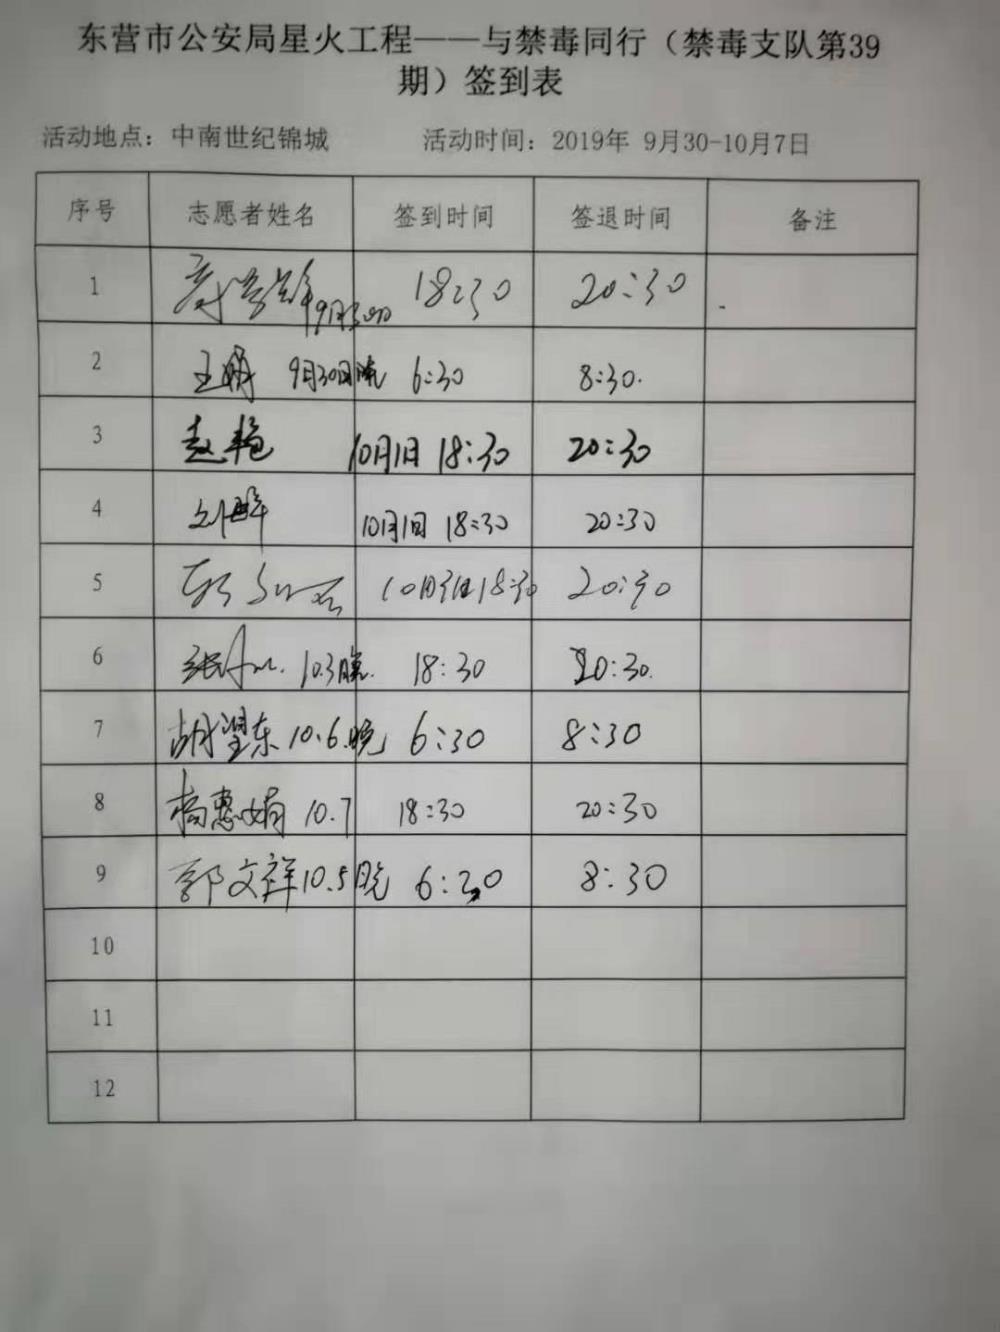 东营市公安局星火工程——与禁毒同行（禁毒支队第39
期）签到表
活动地点：中南世纪锦城 活动时间：2019年 9月30-10月7日
序号 志愿者姓名 签到时间 签退时间 备注
1 9月30日 18:30 20:30
2 王鹏 9月30日晚 6:30 8:30.
3 赵艳 10月1日 18:30 20:30
4 刘 10月1日 18:30 20:30
5 10月3日 18:30 20:30
6 张 10.3晚. 18:30 20:30.
7 胡望东 10.6.晚 6:30 8:30
8 杨惠娟 10.7 18:30 20:30
9 郭文祥 10.5晚 6:30 8:30
10
11
12